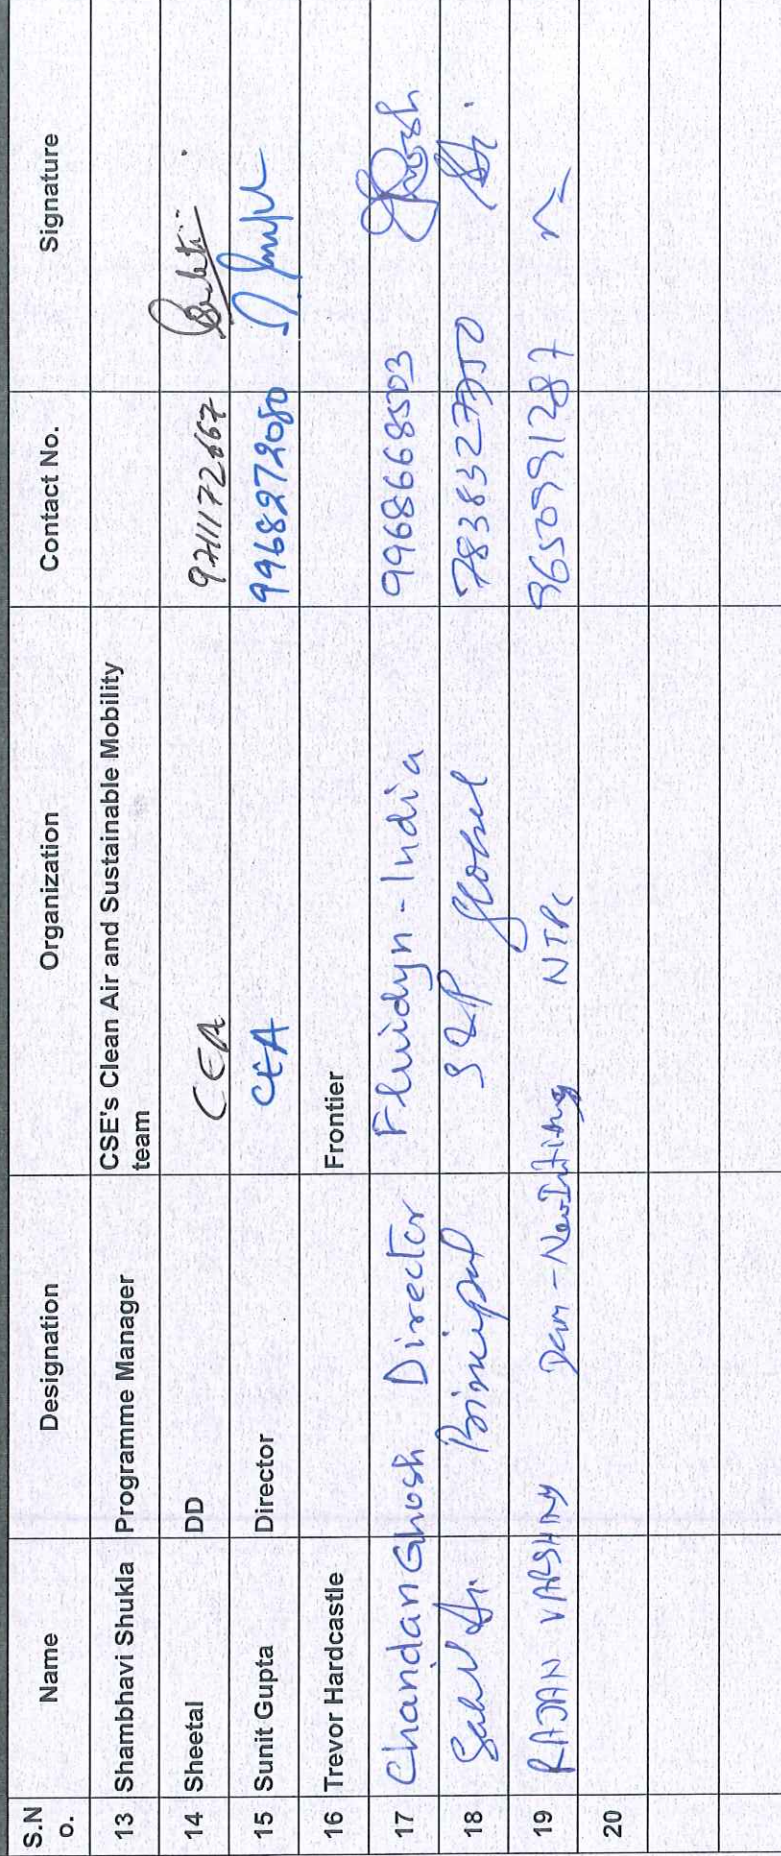 S.N o. Name Designation Organization Contact No. Signature
13 Shambhavi Shukla Programme Manager CSE's Clean Air and Sustainable Mobility
team
14 Sheetal DD CEA 9711172667
15 Sunit Gupta Director CEA 9968272080
16 Trevor Hardcastle Frontier
17 Chandan Ghosh Director Fluidyn-India 9968668503
18 Principal S&P Global
19 RAJAN VARSHNEY NTPC 9650991287
20